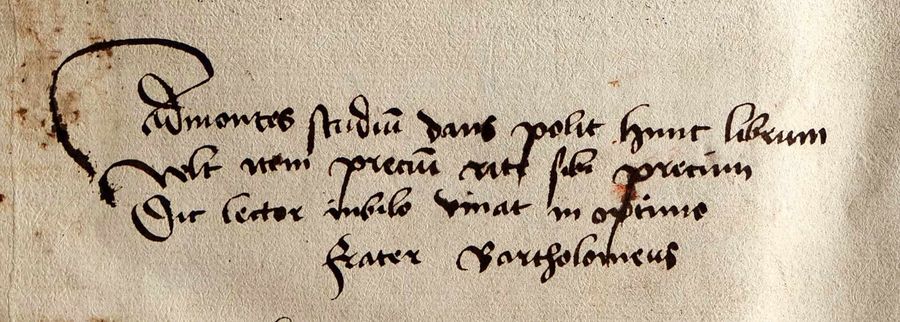 Admontes studiū dans polit hunc librum
Vult item preciū rite sibi precium
Dic lector iubilo viuat in optimo
frater Bartholomeus